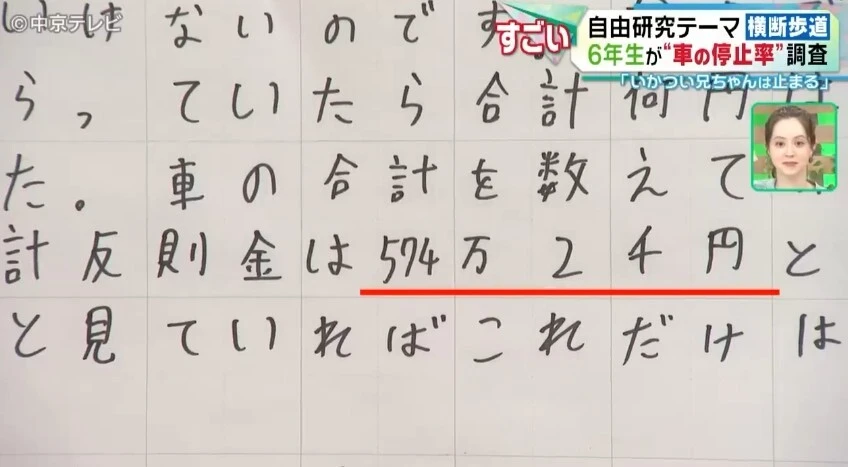 ©中京テレビ
すごい
自由研究テーマ 横断歩道
6年生が“車の停止率”調査
「いかつい兄ちゃんは止まる」
ないので
らっていたら合計何円
た。車の合計を数えて
計反則金は574万2千円と
と見ていればこれだけは